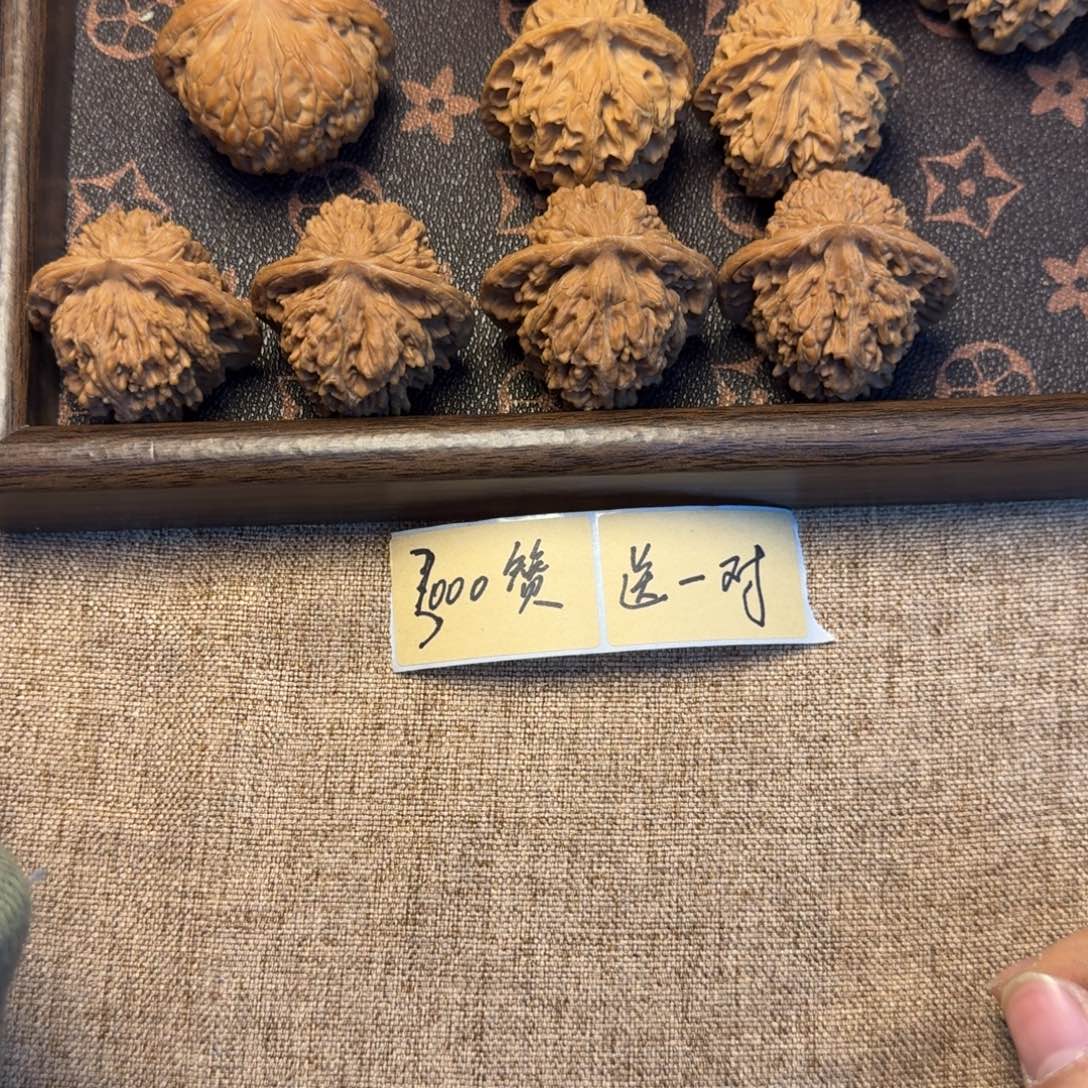 3000赞 送一对